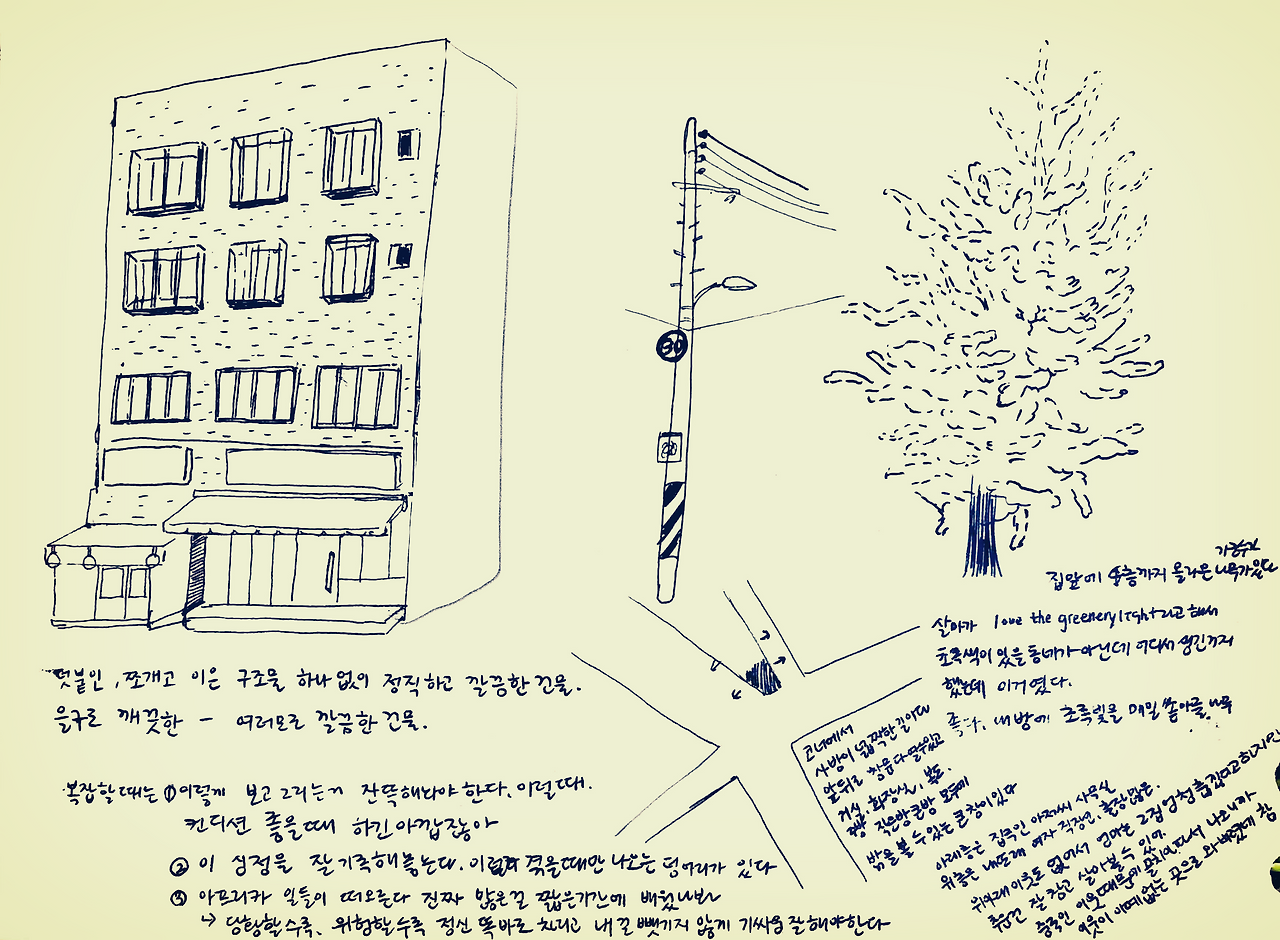 30
가로수가
집앞에 4층까지 올라온 나무가 있다
살아가 love the greenery light 라고 해서
초록색이 있을 동네가 아닌데 어디서 생긴거지
했는데 이거였다.
좋다, 내 방에 초록빛을 매일 쏟아줄 나무
덧붙인, 쪼개고 이은 구조물 하나 없이 정직하고 깔끔한 건물.
을구로 깨끗한 - 여러모로 깔끔한 건물.
복잡할때는 ① 이렇게 보고 그리는거 잔뜩해놔야한다. 이럴때.
컨디션 좋을때 하긴 아깝잖아
② 이 심정을 잘 기록해놓는다. 이렇게 겪을때만 나오는 덩어리가 있다
③ 아프리카 일들이 떠오른다 진짜 많은걸 짧은기간에 배웠나봐
↳ 당황할수록, 위험할수록 정신 똑바로 차리고 내껄 뺏기지 않게 기싸움 잘해야한다
코너에서
사방이 널찍한 길이다
앞뒤로 창문 다 열수있고
거실, 화장실, 부엌,
작은방 큰방 모두에
밖을 볼 수 있는 큰 창이 있다
아래층은 집주인 아저씨 사무실
위층은 내또래 여자 직장인, 출장 많은.
위아래 이웃도 없어서 엄마는 그집 엄청 춥겠다고 하지만
푹 잘 자고 살아볼 수 있어.
중국인 이웃 때문에 골치인데서 나오니까
이웃이 아예 없는 곳으로 와버렸네 참